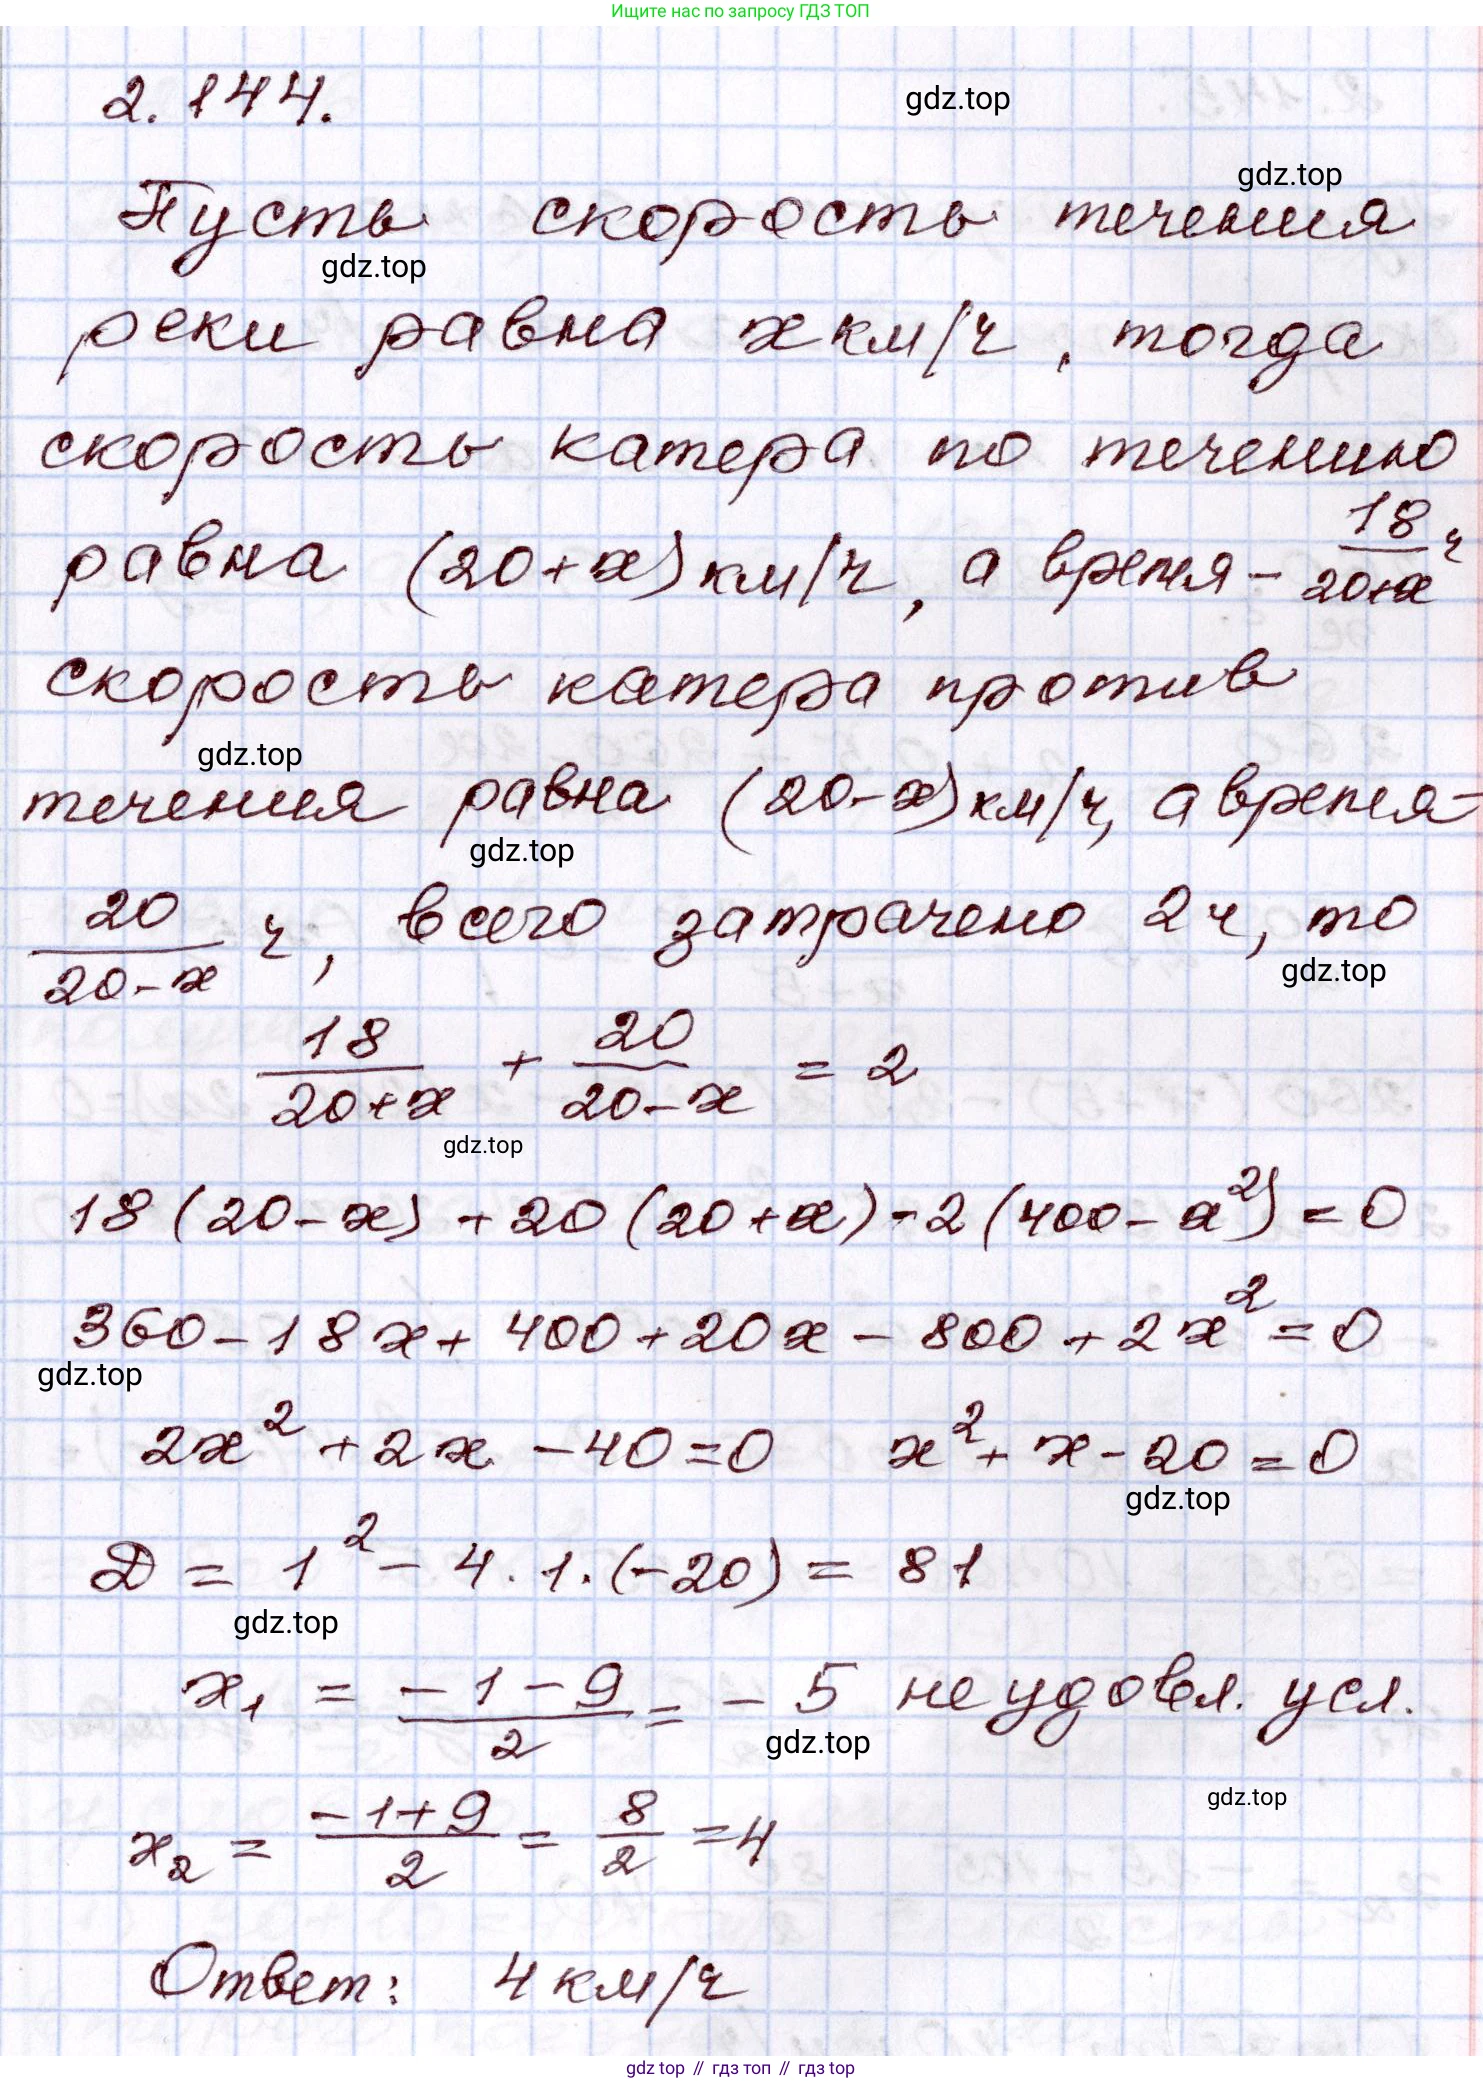 Ищите нас по запросу ГДЗ ТОП
2.144.
gdz.top
gdz.top
Пусть скорость течения
gdz.top
реки равна x км/ч, тогда
скорость катера по течению
равна (20+x) км/ч, а время - 18/(20+x) ч
скорость катера против
gdz.top
течения равна (20-x) км/ч, а время -
gdz.top
20/(20-x) ч, всего затрачено 2ч, то
gdz.top
18/(20+x) + 20/(20-x) = 2
gdz.top
18(20-x)+20(20+x)-2(400-x²)=0
360-18x+400+20x-800+2x²=0
gdz.top
2x²+2x-40=0 x²+x-20=0
gdz.top
D = 1² - 4·1·(-20) = 81
gdz.top
x₁ = (-1-9)/2 = -5 не удовл. усл.
gdz.top
gdz.top
x₂ = (-1+9)/2 = 8/2 = 4
Ответ: 4 км/ч
gdz.top // гдз топ // гдз.top